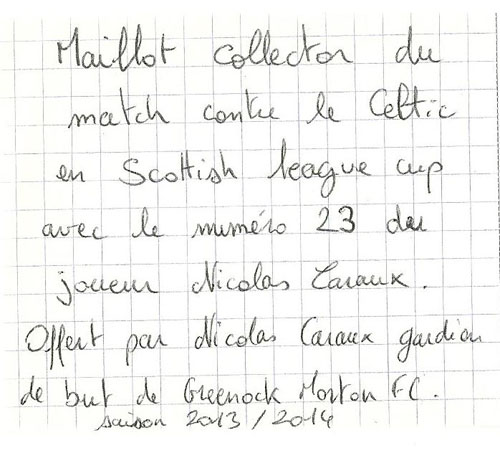 Maillot collector du
match contre le Celtic
en Scottish league cup
avec le numéro 23 du
joueur Nicolas Caraux.
Offert par Nicolas Caraux gardien
de but de Greenock Morton FC.
saison 2013/2014